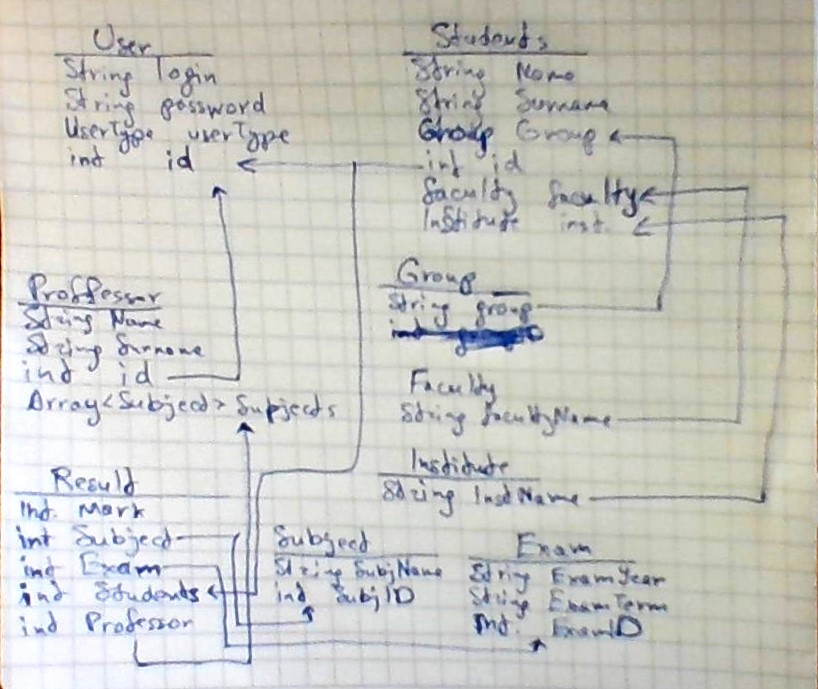 User
String login
String password
UserType userType
int id
Students
String Name
String Surname
Group Group
int id
Faculty faculty
Institute inst.
Group
String group
Proffessor
String Name
String Surname
int id
Array<Subject> Subjects
Faculty
String facultyName
Institute
String InstName
Result
Int. Mark
int Subject
int Exam
int Students
int Professor
Subject
String SubjName
int SubjID
Exam
String ExamYear
String ExamTerm
Int. ExamID